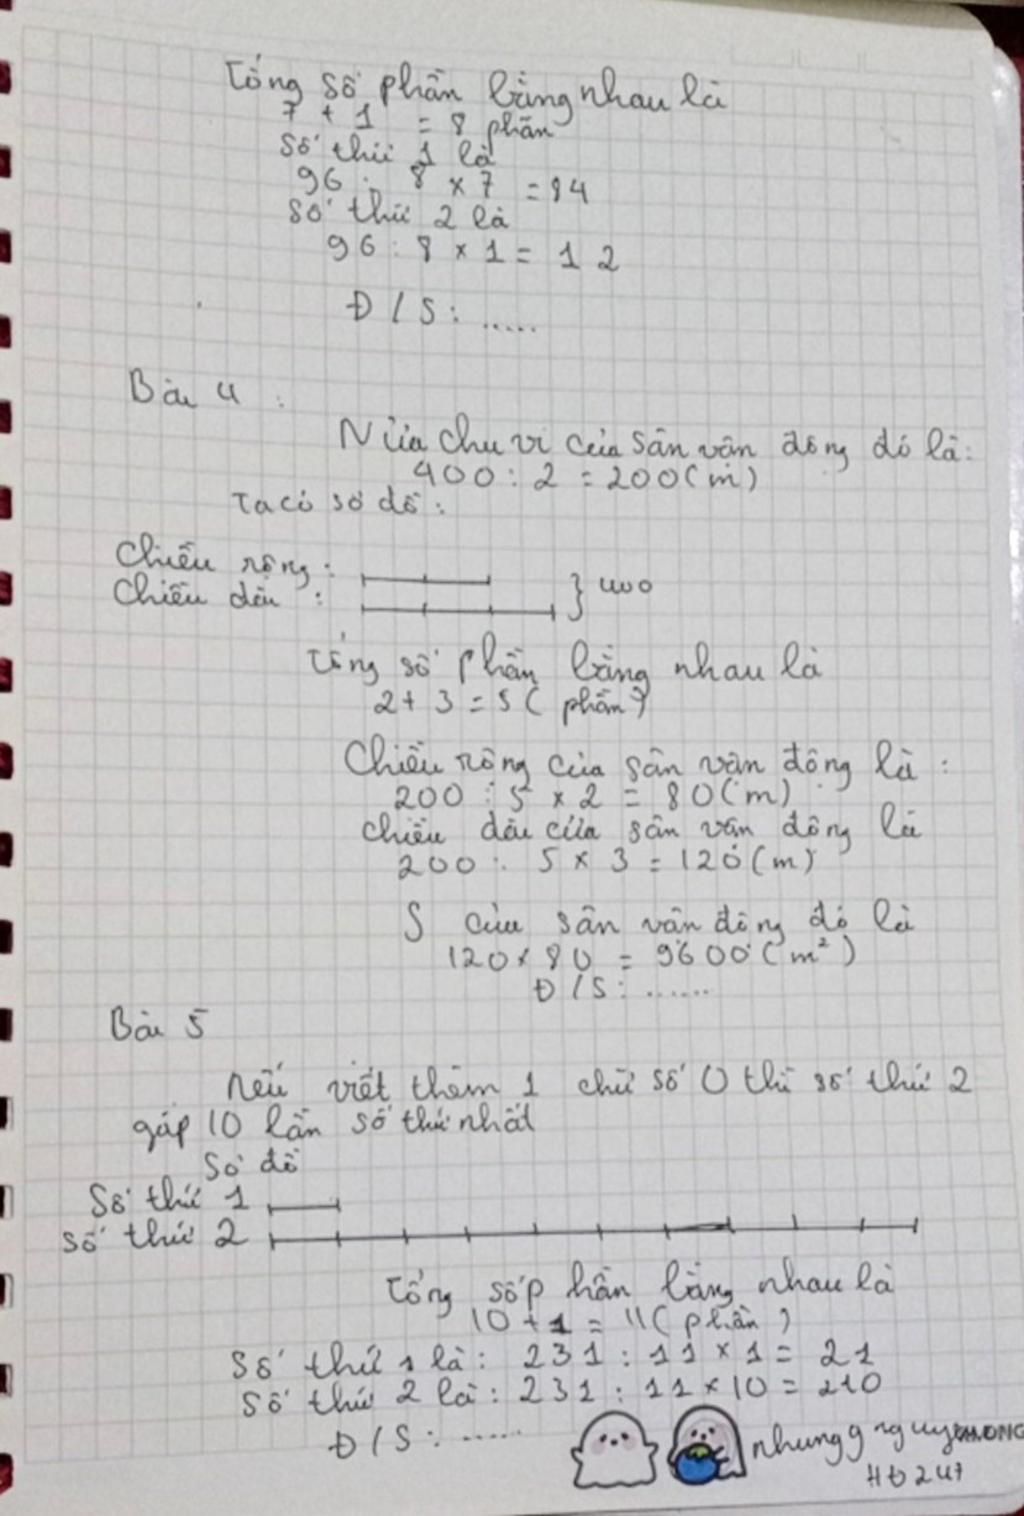 Tổng số phần bằng nhau là
7 + 1 = 8 phần
Số thứ 1 là
96 : 8 × 7 = 84
Số thứ 2 là
96 : 8 × 1 = 12
Đ/S : .....
Bài 4 :
Nửa chu vi của sân vân đông đó là:
400 : 2 = 200 (m)
Ta có sơ đồ :
Chiều rộng :
Chiều dài :
} 400
Tổng số phần bằng nhau là
2 + 3 = 5 ( phần )
Chiều rông của sân vân đông là :
200 : 5 × 2 = 80 (m)
chiều dài của sân vân đông là
200 : 5 × 3 = 120 (m)
S của sân vân đông đó là
120 × 80 = 9600 (m²)
Đ/S : ......
Bài 5
nếu viết thêm 1 chữ số 0 thì số thứ 2
gấp 10 lần số thứ nhất
Sơ đồ
Số thứ 1
số thứ 2
Tổng số phần bằng nhau là
10 + 1 = 11 ( phần )
Số thứ 1 là : 231 : 11 × 1 = 21
số thứ 2 là : 231 : 11 × 10 = 210
Đ/S : ......